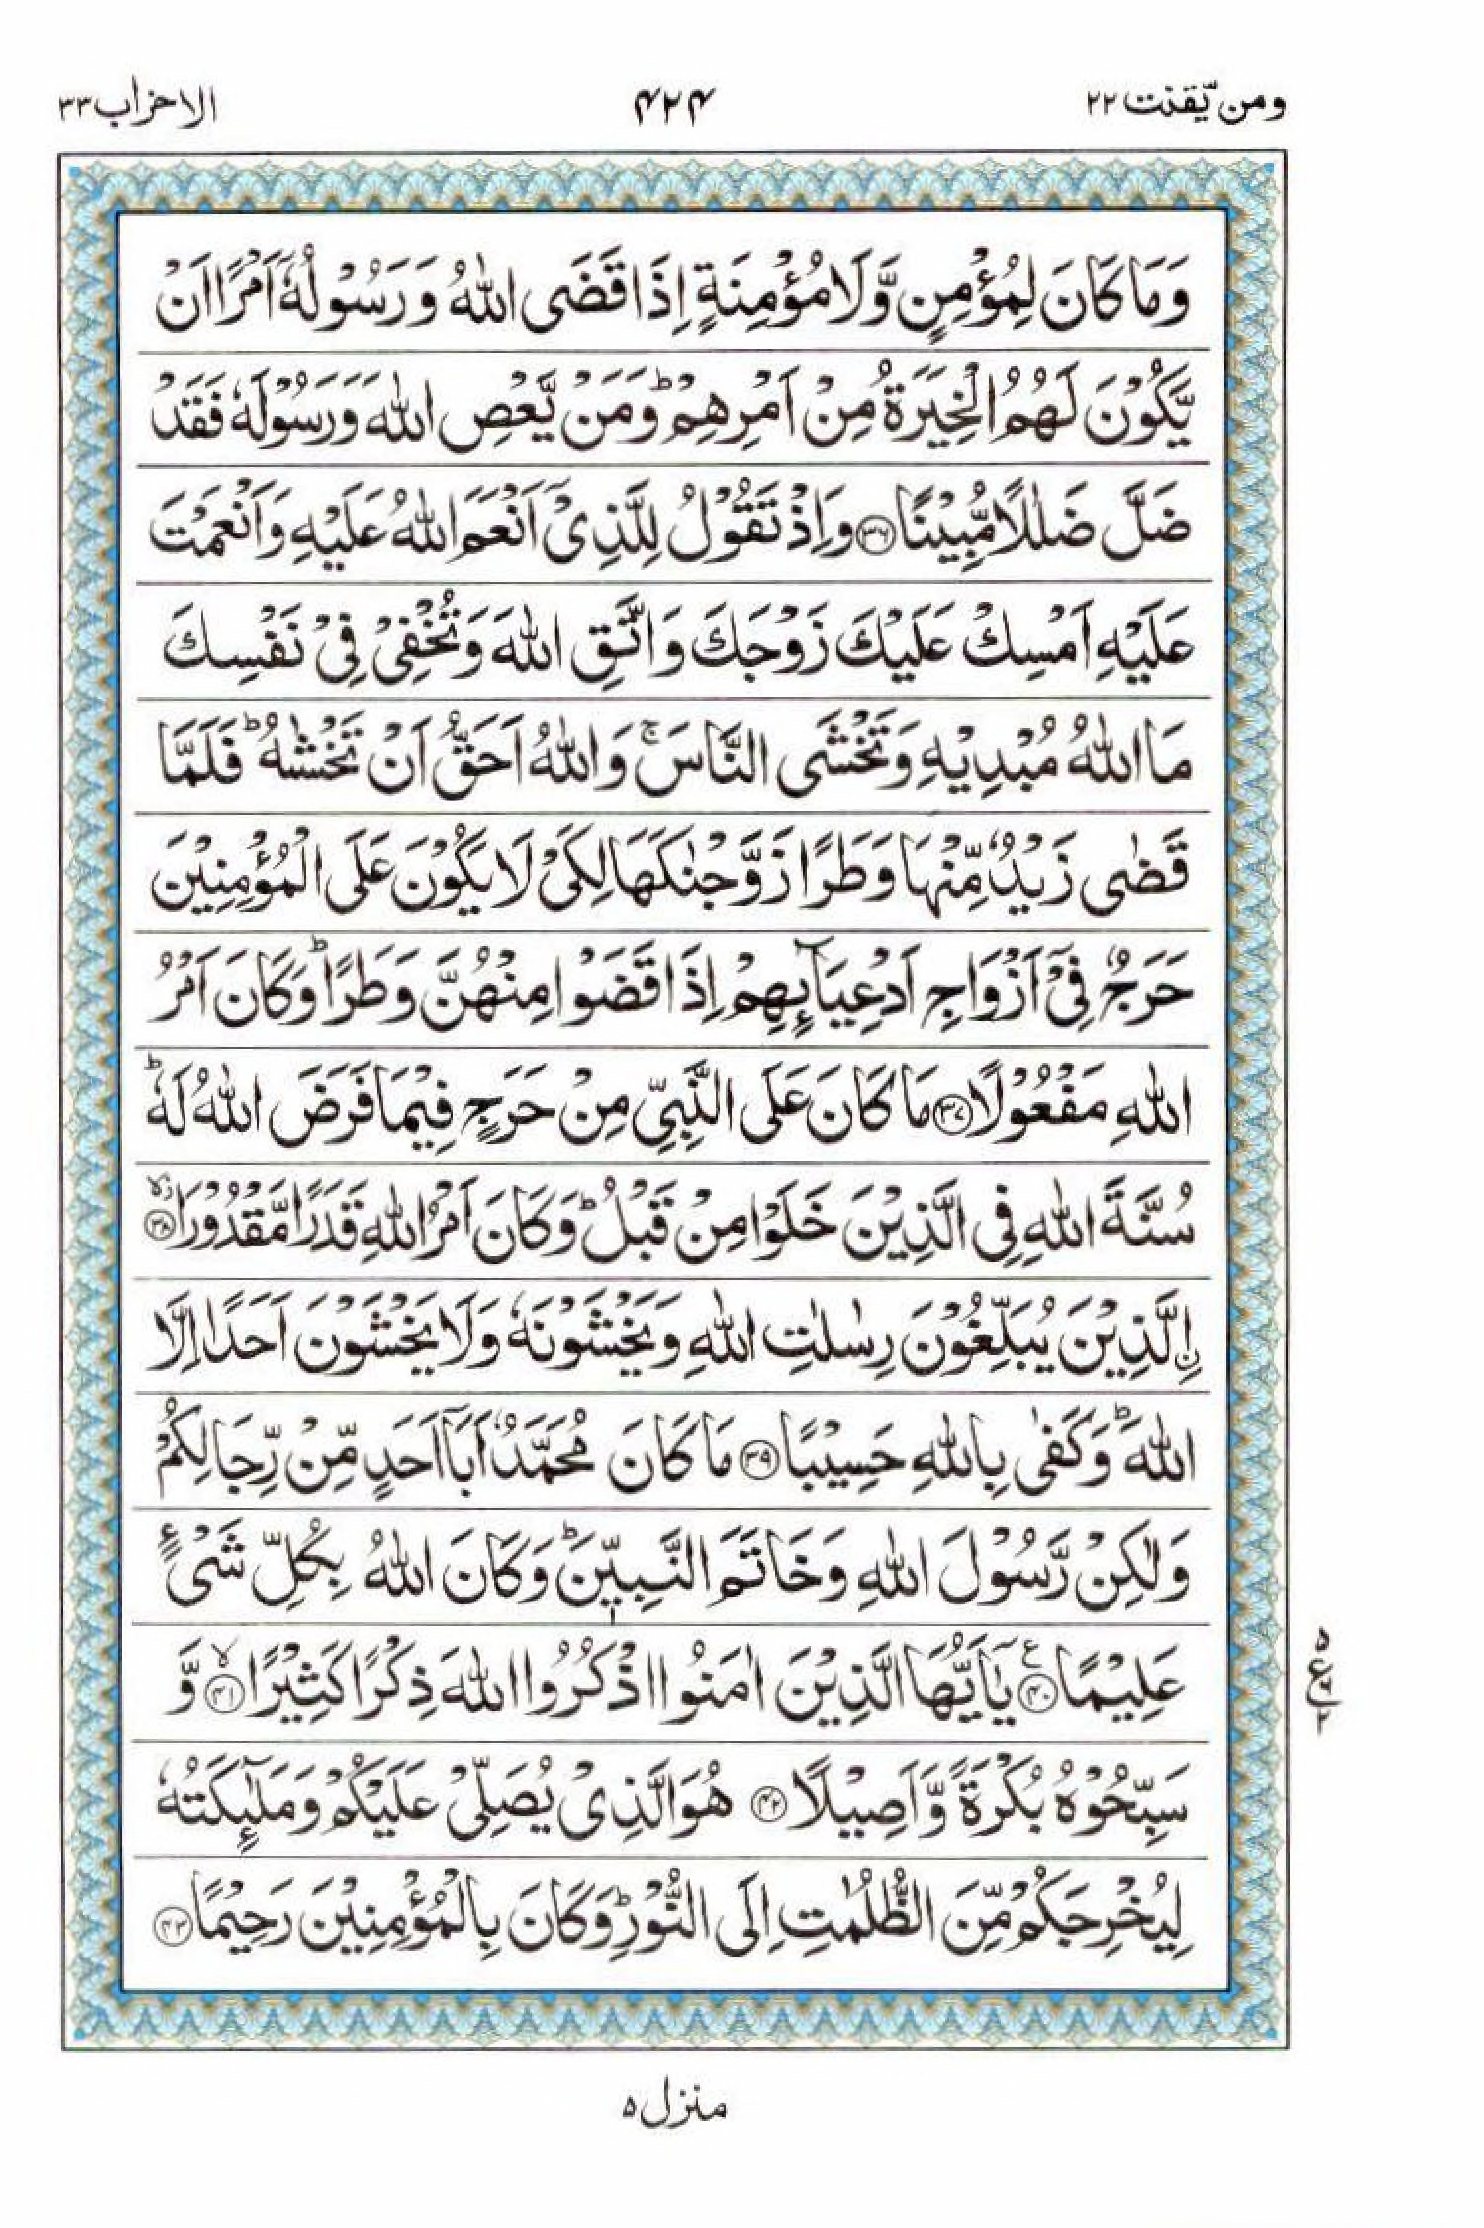 ومن يّقنت ٢٢ ٤٢٤ الاحزاب ٣٣
وَمَا كَانَ لِمُؤْمِنٍ وَّلَا مُؤْمِنَةٍ اِذَا قَضَى اللّٰهُ وَ رَسُوْلُهٗۤ اَمْرًا اَنْ
يَّكُوْنَ لَهُمُ الْخِيَرَةُ مِنْ اَمْرِهِمْ ؕ وَمَنْ يَّعْصِ اللّٰهَ وَ رَسُوْلَهٗ فَقَدْ
ضَلَّ ضَلٰلًا مُّبِيْنًا ۝۳۶ وَ اِذْ تَقُوْلُ لِلَّذِيْۤ اَنْعَمَ اللّٰهُ عَلَيْهِ وَ اَنْعَمْتَ
عَلَيْهِ اَمْسِكْ عَلَيْكَ زَوْجَكَ وَ اتَّقِ اللّٰهَ وَ تُخْفِيْ فِيْ نَفْسِكَ
مَا اللّٰهُ مُبْدِيْهِ وَ تَخْشَى النَّاسَ ۚ وَ اللّٰهُ اَحَقُّ اَنْ تَخْشٰىهُ ؕ فَلَمَّا
قَضٰى زَيْدٌ مِّنْهَا وَطَرًا زَوَّجْنٰكَهَا لِكَيْ لَا يَكُوْنَ عَلَى الْمُؤْمِنِيْنَ
حَرَجٌ فِيْۤ اَزْوَاجِ اَدْعِيَآىِٕهِمْ اِذَا قَضَوْا مِنْهُنَّ وَطَرًا ؕ وَكَانَ اَمْرُ
اللّٰهِ مَفْعُوْلًا ۝۳۷ مَا كَانَ عَلَى النَّبِيِّ مِنْ حَرَجٍ فِيْمَا فَرَضَ اللّٰهُ لَهٗ ؕ
سُنَّةَ اللّٰهِ فِي الَّذِيْنَ خَلَوْا مِنْ قَبْلُ ؕ وَكَانَ اَمْرُ اللّٰهِ قَدَرًا مَّقْدُوْرَا ۝۳۸
اِ۟لَّذِيْنَ يُبَلِّغُوْنَ رِسٰلٰتِ اللّٰهِ وَ يَخْشَوْنَهٗ وَلَا يَخْشَوْنَ اَحَدًا اِلَّا
اللّٰهَ ؕ وَكَفٰى بِاللّٰهِ حَسِيْبًا ۝۳۹ مَا كَانَ مُحَمَّدٌ اَبَاۤ اَحَدٍ مِّنْ رِّجَالِكُمْ
وَلٰكِنْ رَّسُوْلَ اللّٰهِ وَخَاتَمَ النَّبِيّٖنَ ؕ وَكَانَ اللّٰهُ بِكُلِّ شَيْءٍ
عَلِيْمًا ۝۴۰ ع يٰۤاَيُّهَا الَّذِيْنَ اٰمَنُوا اذْكُرُوا اللّٰهَ ذِكْرًا كَثِيْرًا ۝۴۱ۙ وَّ
سَبِّحُوْهُ بُكْرَةً وَّاَصِيْلًا ۝۴۲ هُوَ الَّذِيْ يُصَلِّيْ عَلَيْكُمْ وَمَلٰٓىِٕكَتُهٗ
لِيُخْرِجَكُمْ مِّنَ الظُّلُمٰتِ اِلَى النُّوْرِ ؕ وَكَانَ بِالْمُؤْمِنِيْنَ رَحِيْمًا ۝۴۳
منزل ٥